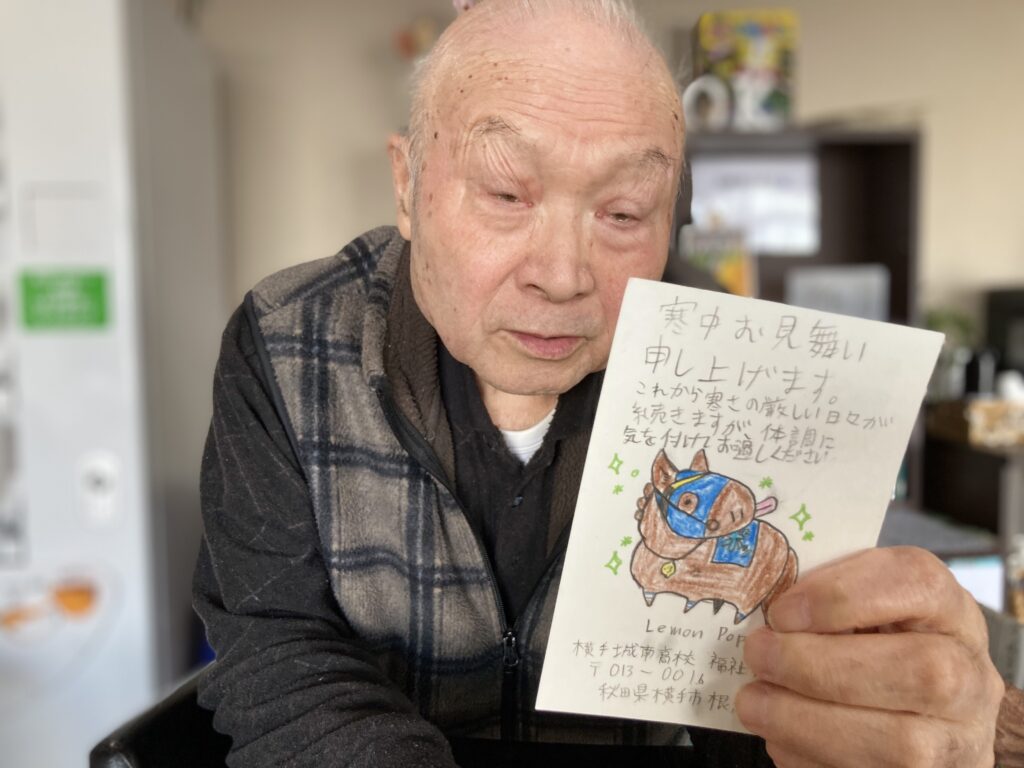 寒中お見舞い
申し上げます。
これから寒さの厳しい日々が
続きますが 体調に
気を付けてお過しください
Lemon Pop
横手城南高校 福祉
〒013-0016
秋田県横手市 根